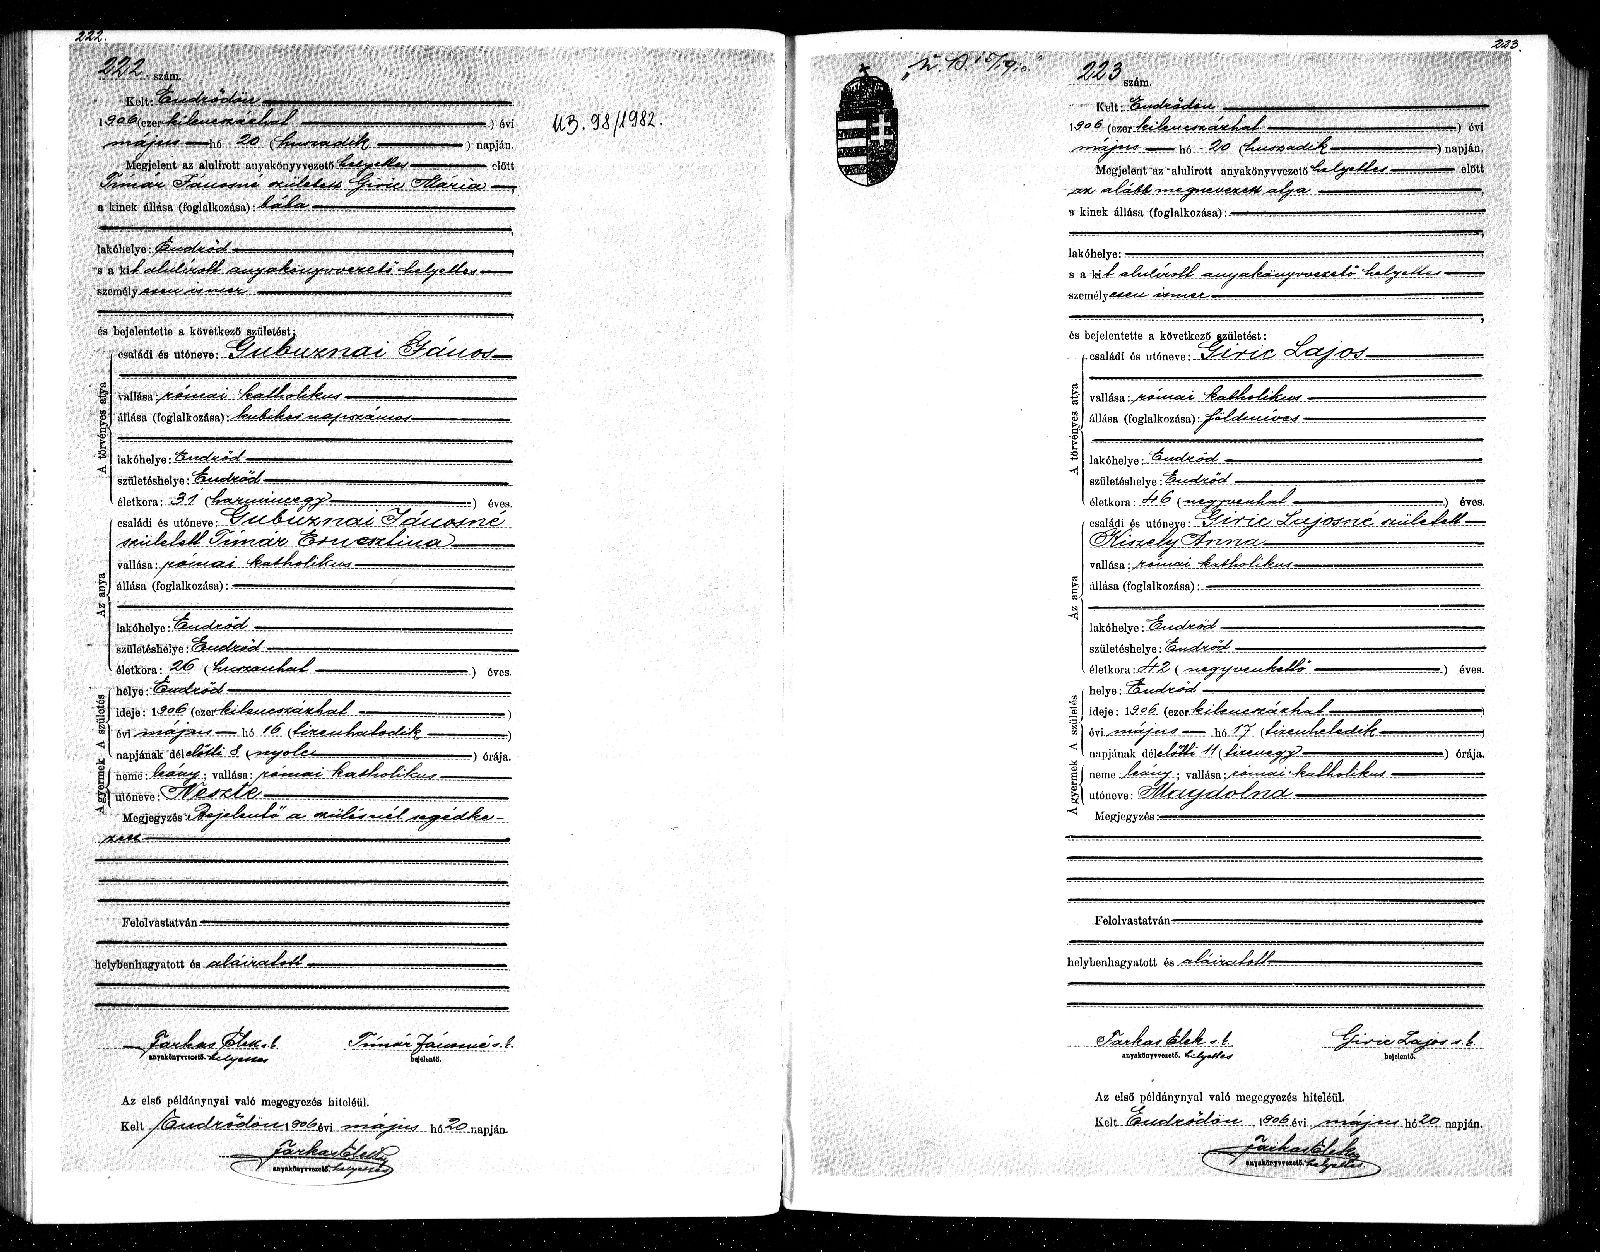 222.
222 szám.
Kelt: Endrődön
1906 (ezer kilenczázhat ) évi
május hó 20 (huszadik ) napján.
Megjelent az alulirott anyakönyvvezető helyettes előtt
Timár Jánosné született Giric Mária
a kinek állása (foglalkozása): bába
lakóhelye: Endrőd
s a kit alulírott anyakönyvvezető helyettes
személyesen ismer
és bejelentette a következő születést:
A törvényes atya
családi és utóneve: Gubuznai János
vallása: római katholikus
állása (foglalkozása): kubikos napszámos
lakóhelye: Endrőd
születéshelye: Endrőd
életkora: 31 (harminczegy ) éves.
Az anya
családi és utóneve: Gubuznai Jánosné
született Timár Ernesztina
vallása: római katholikus
állása (foglalkozása):
lakóhelye: Endrőd
születéshelye: Endrőd
életkora: 26 (huszonhat ) éves.
A gyermek A születés
helye: Endrőd
ideje: 1906 (ezer kilenczázhat )
évi május hó 16 (tizenhatodik )
napjának délelőtti 8 (nyolcz ) órája.
neme: leány; vallása: római katholikus
utóneve:
Megjegyzés: Bejelentő a szülésnél segédke-
zett
Felolvastatván
helybenhagyatott és aláiratott
Farkas Elek s. k. Timár Jánosné s. k.
anyakönyvvezető. helyettes bejelentő.
Az első példánynyal való megegyezés hiteléül.
Kelt Endrődön 1906 évi május hó 20 napján.
Farkas Elek
anyakönyvvezető. helyettes
UB. 98/1982.
223.
223 szám.
Kelt: Endrődön
1906 (ezer kilenczszázhat ) évi
május hó 20 (huszadik ) napján.
Megjelent az alulirott anyakönyvvezető helyettes előtt
az alább megnevezett atya
a kinek állása (foglalkozása):
lakóhelye:
s a kit alulírott anyakönyvvezető helyettes
személyesen ismer
és bejelentette a következő születést:
A törvényes atya
családi és utóneve: Giric Lajos
vallása: római katholikus
állása (foglalkozása): földmíves
lakóhelye: Endrőd
születéshelye: Endrőd
életkora: 46 (negyvenhat ) éves.
Az anya
családi és utóneve: Giric Lajosné született
Kiszely Anna
vallása: római katholikus
állása (foglalkozása):
lakóhelye: Endrőd
születéshelye: Endrőd
életkora: 42 (negyvenkettő ) éves.
A gyermek A születés
helye: Endrőd
ideje: 1906 (ezer kilenczszázhat )
évi május hó 17 (tizenhetedik )
napjának délelőtti 11 (tizenegy ) órája.
neme leány; vallása: római katholikus
utóneve: Magdolna
Megjegyzés:
Felolvastatván
helybenhagyatott és aláiratott
Farkas Elek s. k. Giric Lajos s. k.
anyakönyvvezető. helyettes bejelentő.
Az első példánynyal való megegyezés hiteléül.
Kelt Endrődön 1906 évi május hó 20 napján.
Farkas Elek
anyakönyvvezető. helyettes